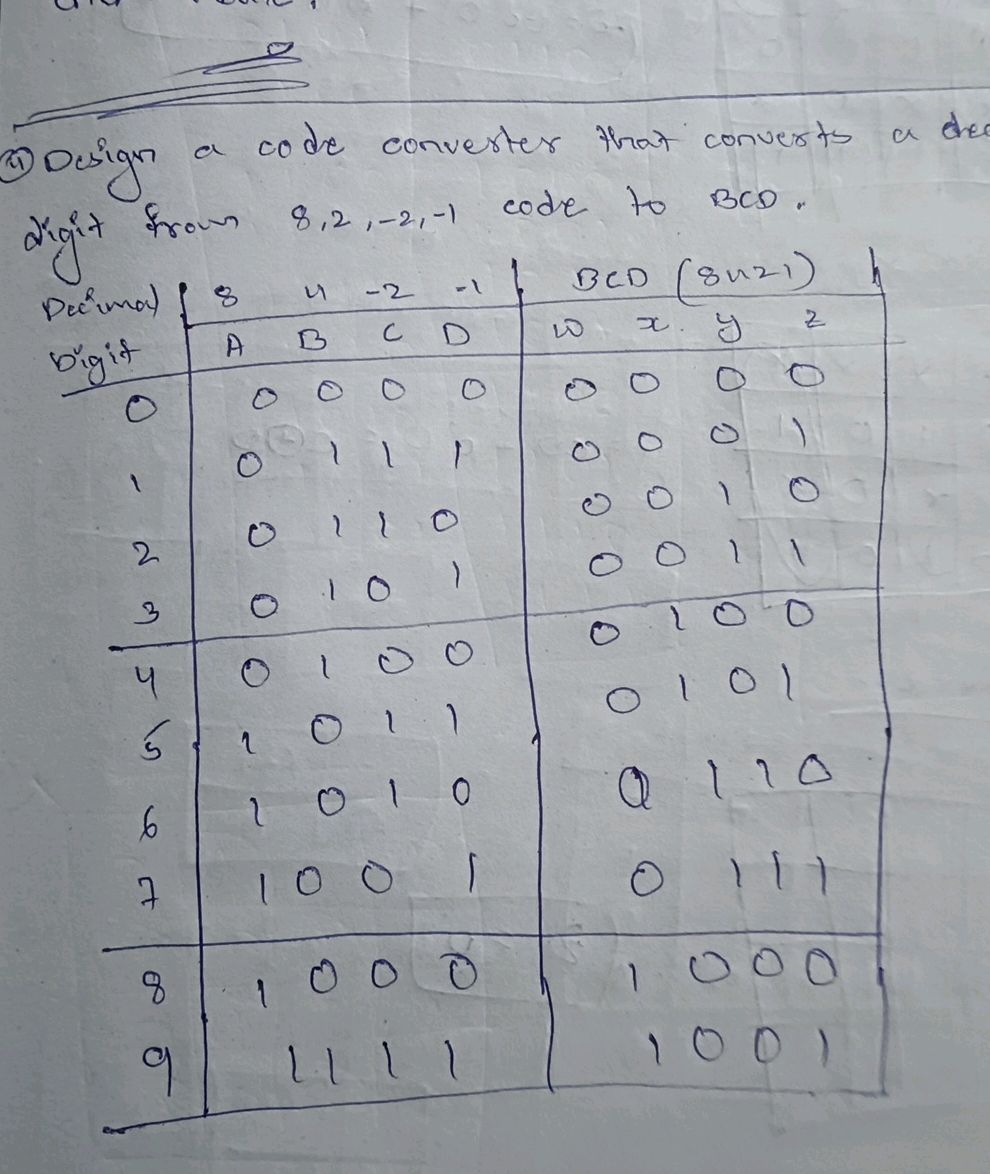 Design a code converter that converts a dec
digit from 8,2,-2,-1 code to BCD.
Decimal 8 4 -2 -1 BCD (8421)
Digit A B C D w x y z
0 0 0 0 0 0 0 0 0
1 0 1 1 1 0 0 0 1
2 0 1 1 0 0 0 1 0
3 0 1 0 1 0 0 1 1
4 0 1 0 0 0 1 0 0
5 1 0 1 1 0 1 0 1
6 1 0 1 0 0 1 1 0
7 1 0 0 1 0 1 1 1
8 1 0 0 0 1 0 0 0
9 1 1 1 1 1 0 0 1